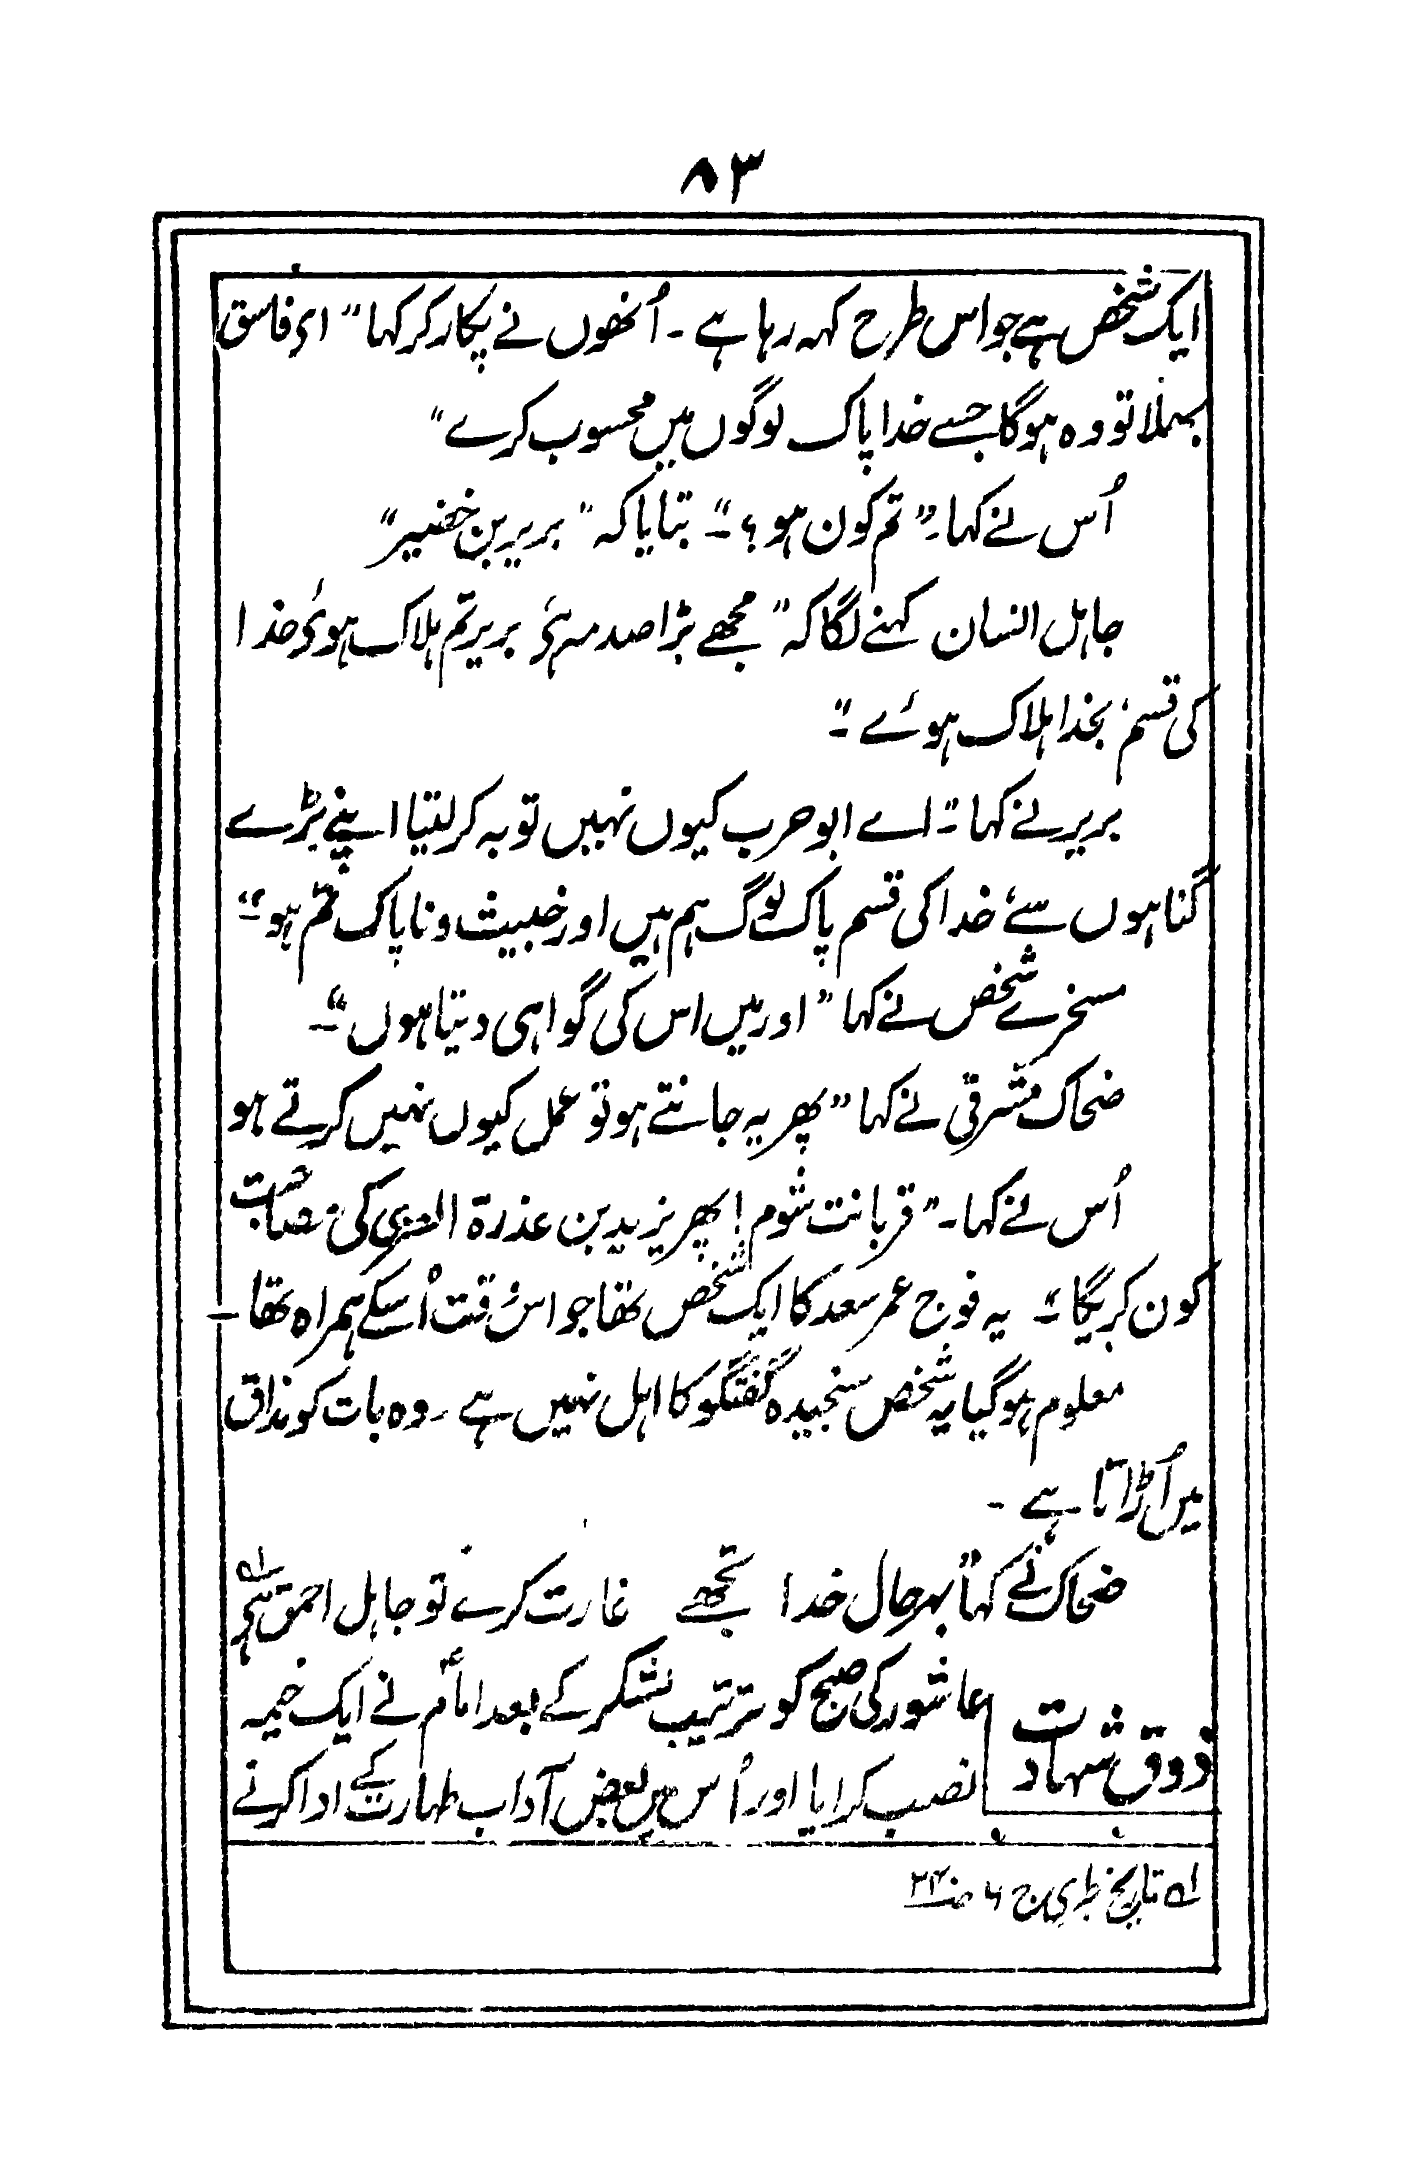 ۸۳
ایک شخص ہے جو اس طرح کہہ رہا ہے۔ اُنھوں نے پکار کر کہا "ای فاسق
بھلا تو وہ ہوگا جسے خدا پاک لوگوں میں محسوب کرے"
اُس نے کہا۔" تم کون ہو؟"۔ بتایا کہ " بریر بن خضیر"
جاہل انسان کہنے لگا کہ " مجھے بڑا صدمہ ہی بریر تم ہلاک ہوئے خدا
کی قسم، بخدا ہلاک ہوئے"۔
بریر نے کہا۔" اے ابو حرب کیوں نہیں توبہ کر لیتا اپنے بڑے
گناہوں سے، خدا کی قسم پاک لوگ ہم ہیں اور خبیث و ناپاک تم ہو"۔
مسخرے شخص نے کہا " اور میں اس کی گواہی دیتا ہوں"۔
ضحاک مشرقی نے کہا " پھر یہ جانتے ہو تو عمل کیوں نہیں کرتے ہو
اُس نے کہا۔" قربانت شوم! پھر یزید بن عذرۃ العنزی کی مصاحبت
کون کریگا"۔ یہ فوج عمر سعد کا ایک شخص تھا جو اس وقت اُسکے ہمراہ تھا۔
معلوم ہو گیا یہ شخص سنجیدہ گفتگو کا اہل نہیں ہے۔ وہ بات کو مذاق
میں اُڑاتا ہے۔
ضحاک نے کہا" بہرحال خدا تجھے غارت کرے تو جاہل احمق ہی لہ
ذوق شہادت
عاشور کی صبح کو ترتیب لشکر کے بعد امامؑ نے ایک خیمہ
نصب کرایا اور اُس میں بعض آداب طہارت کے ادا کرنے
لہ تاریخ طبری ج ۶ صـ